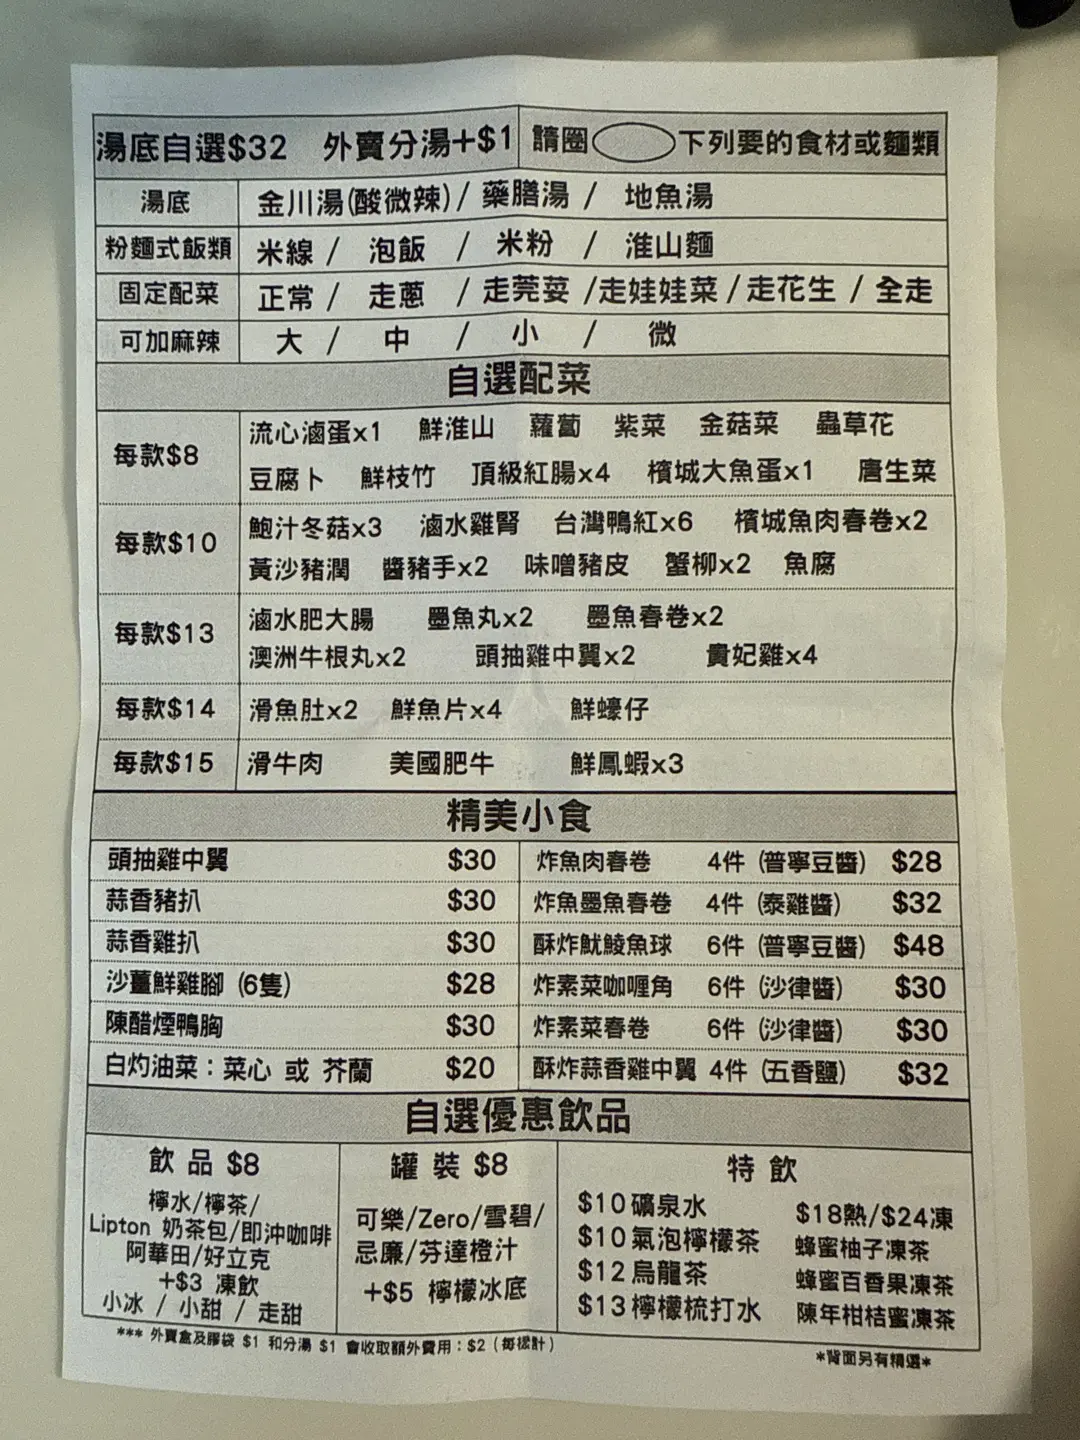 湯底自選$32 外賣分湯+$1 請圈 下列要的食材或麵類
湯底 金川湯(酸微辣) / 藥膳湯 / 地魚湯
粉麵式飯類 米線 / 泡飯 / 米粉 / 淮山麵
固定配菜 正常 / 走蔥 / 走莞荽 / 走娃娃菜 / 走花生 / 全走
可加麻辣 大 / 中 / 小 / 微
自選配菜
每款$8
流心滷蛋x1 鮮淮山 蘿蔔 紫菜 金菇菜 蟲草花
豆腐卜 鮮枝竹 頂級紅腸x4 檳城大魚蛋x1 唐生菜
每款$10
鮑汁冬菇x3 滷水雞腎 台灣鴨紅x6 檳城魚肉春卷x2
黃沙豬潤 醬豬手x2 味噌豬皮 蟹柳x2 魚腐
每款$13
滷水肥大腸 墨魚丸x2 墨魚春卷x2
澳洲牛根丸x2 頭抽雞中翼x2 貴妃雞x4
每款$14 滑魚肚x2 鮮魚片x4 鮮蠔仔
每款$15 滑牛肉 美國肥牛 鮮鳳蝦x3
精美小食
頭抽雞中翼 $30 炸魚肉春卷 4件 (普寧豆醬) $28
蒜香豬扒 $30 炸魚墨魚春卷 4件 (泰雞醬) $32
蒜香雞扒 $30 酥炸魷鯪魚球 6件 (普寧豆醬) $48
沙薑鮮雞腳 (6隻) $28 炸素菜咖喱角 6件 (沙律醬) $30
陳醋煙鴨胸 $30 炸素菜春卷 6件 (沙律醬) $30
白灼油菜：菜心 或 芥蘭 $20 酥炸蒜香雞中翼 4件 (五香鹽) $32
自選優惠飲品
飲 品 $8
檸水/檸茶/
Lipton 奶茶包/即沖咖啡
阿華田/好立克
+$3 凍飲
小冰 / 小甜 / 走甜
罐 裝 $8
可樂/Zero/雪碧/
忌廉/芬達橙汁
+$5 檸檬冰底
特 飲
$10礦泉水
$10氣泡檸檬茶
$12烏龍茶
$13檸檬梳打水
$18熱/$24凍
蜂蜜柚子凍茶
蜂蜜百香果凍茶
陳年柑桔蜜凍茶
*** 外賣盒及膠袋 $1 和分湯 $1 會收取額外費用：$2 (每樣計)
*背面另有精選*